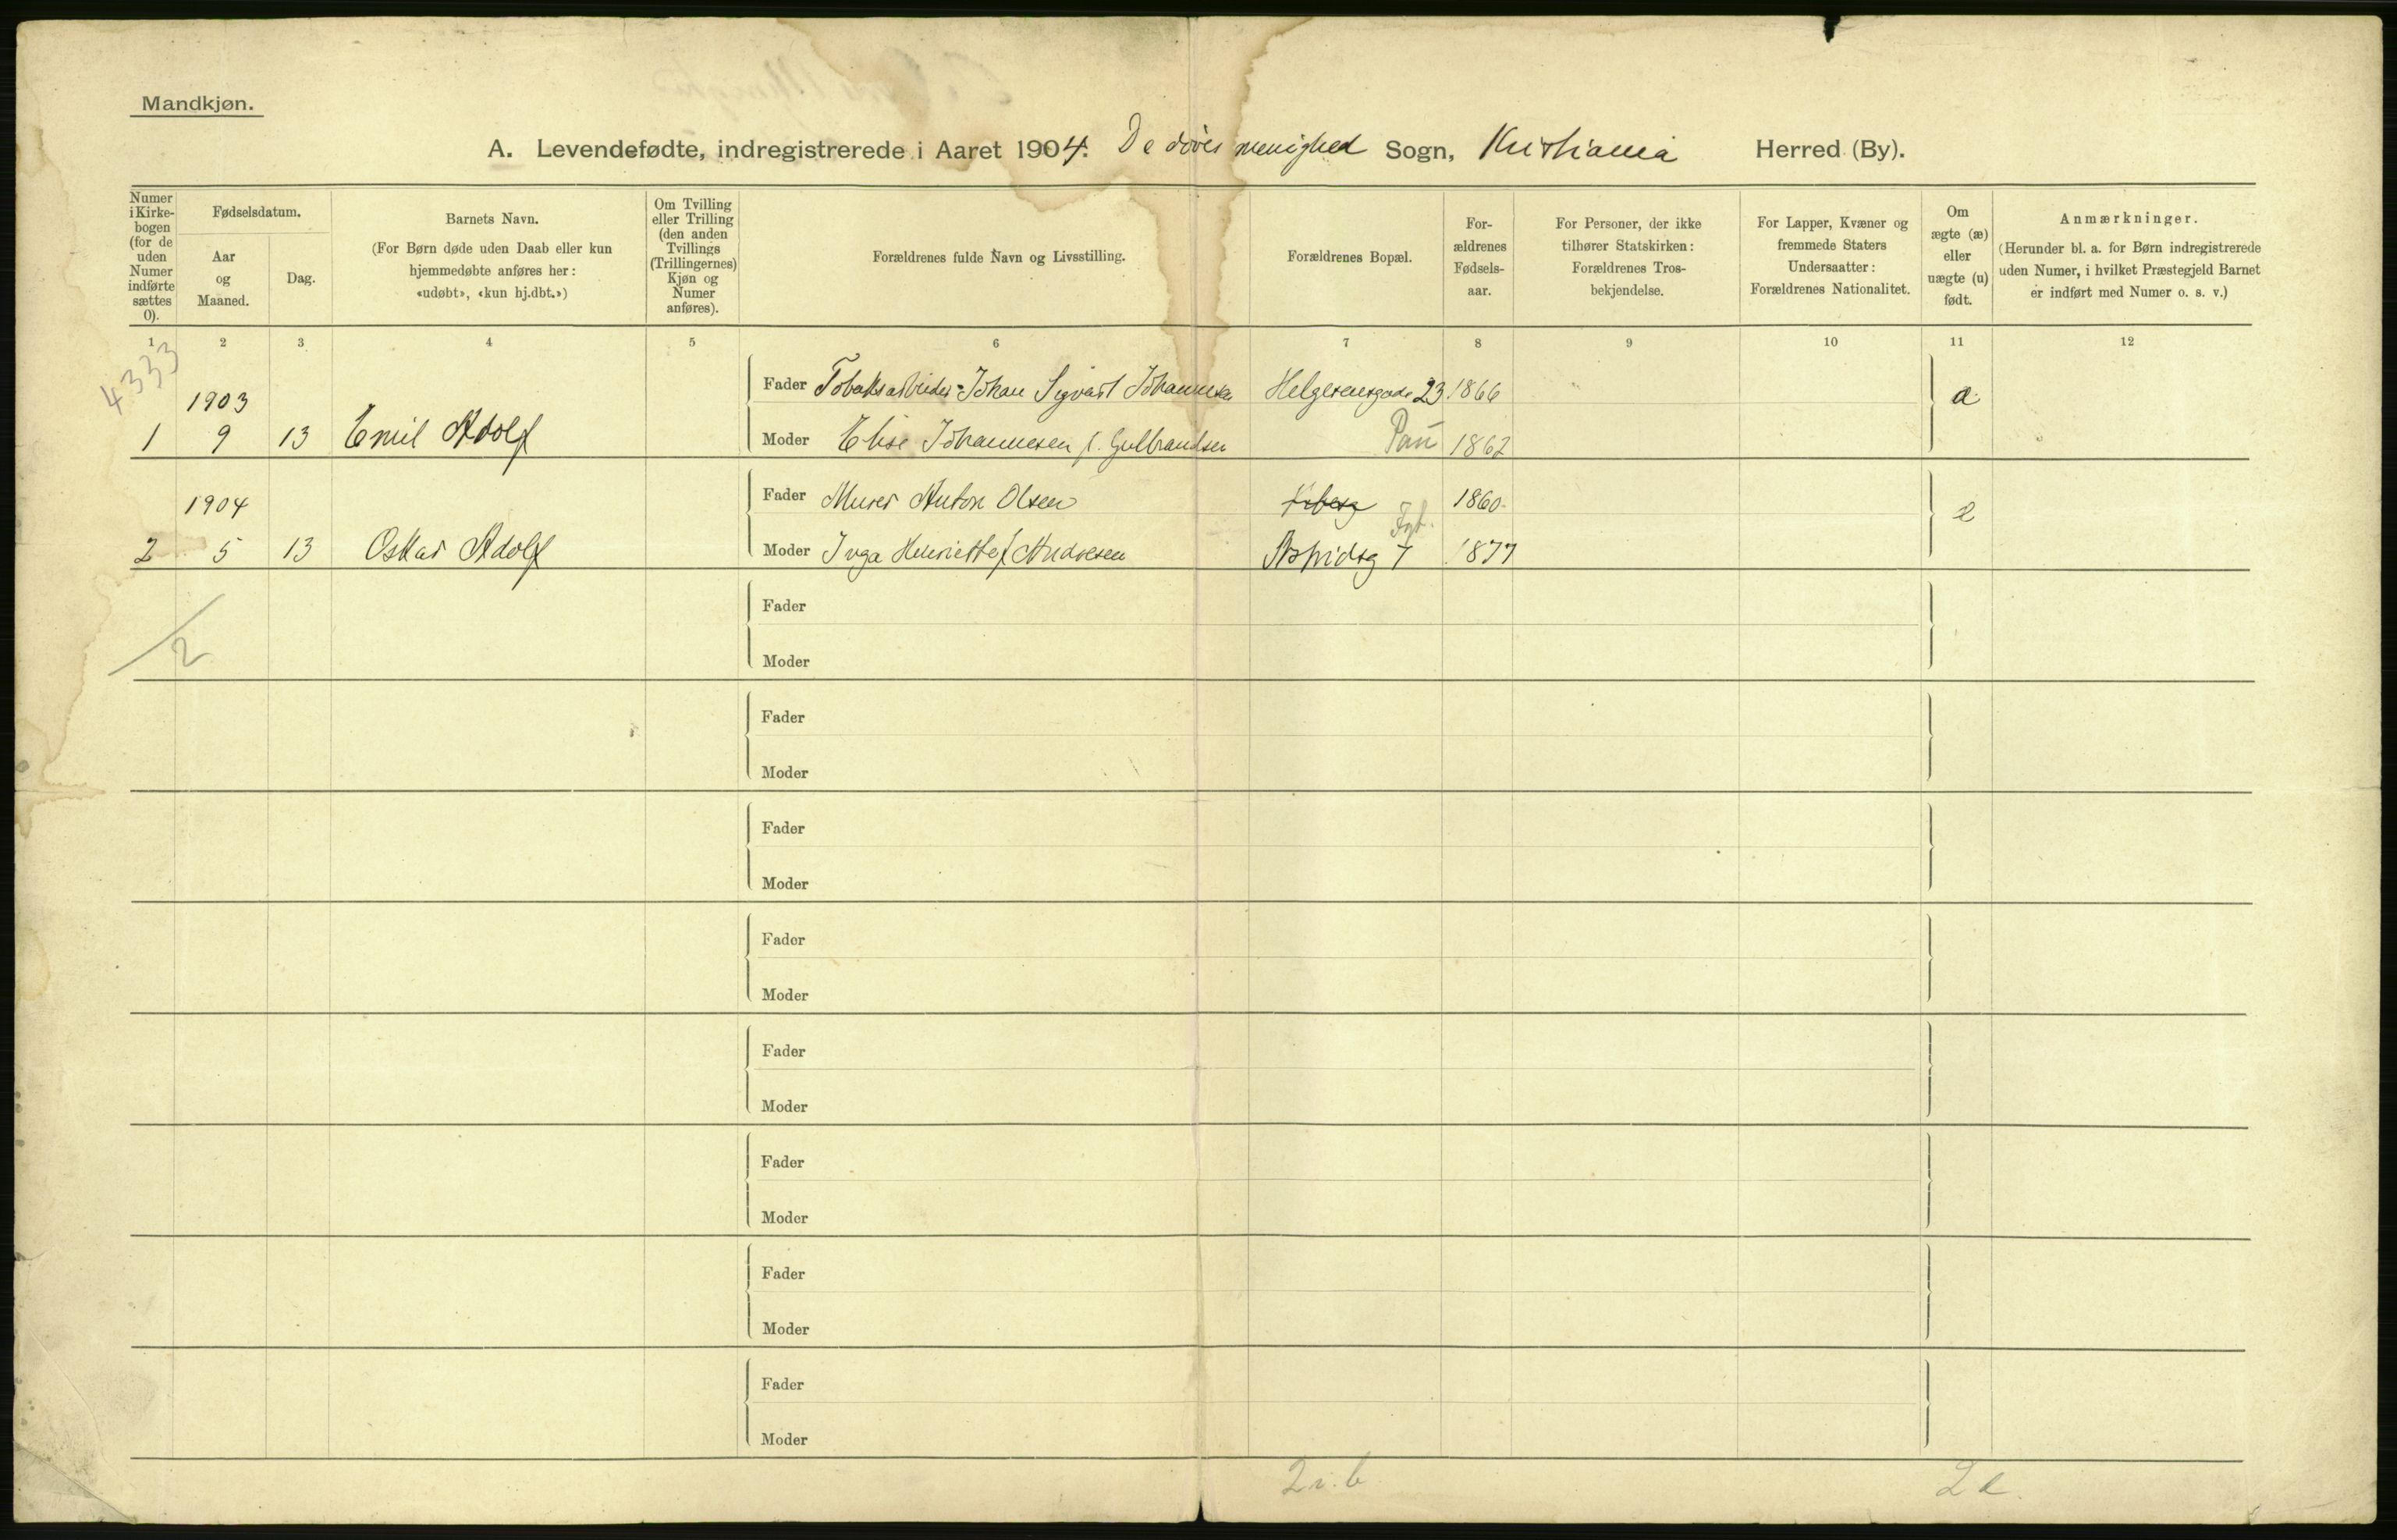 Mandkjøn.
A. Levendefødte, indregistrerede i Aaret 1904. De døves menighed Sogn, Kristiania Herred (By).
Numer
i Kirke-
bogen
(for de
uden
Numer
indførte
sættes
0).
Fødselsdatum.
Aar
og
Maaned.
Dag.
Barnets Navn.
(For Børn døde uden Daab eller kun
hjemmedøbte anføres her:
«udøbt», «kun hj.dbt.»)
Om Tvilling
eller Trilling
(den anden
Tvillings
(Trillingernes)
Kjøn og
Numer
anføres).
Forældrenes fulde Navn og Livsstilling.
Forældrenes Bopæl.
For-
ældrenes
Fødsels-
aar.
For Personer, der ikke
tilhører Statskirken:
Forældrenes Tros-
bekjendelse.
For Lapper, Kvæner og
fremmede Staters
Undersaatter:
Forældrenes Nationalitet.
Om
ægte (æ)
eller
uægte (u)
født.
Anmærkninger.
(Herunder bl. a. for Børn indregistrerede
uden Numer, i hvilket Præstegjeld Barnet
er indført med Numer o. s. v.)
1 2 3 4 5 6 7 8 9 10 11 12
4333
1903
Fader Tobaksarbeider Johan Sigvart Johannesen Helgesensgade 23 1866 æ
1 9 13 Emil Adolf
Moder Elise Johannesen f. Gulbrandsen Pau 1862
1904
Fader Murer Anton Olsen 1860. æ
2 5 13 Oskar Adolf
Moder Inga Henriette f. Andresen 7 1877
2
Fader
Moder
Fader
Moder
Fader
Moder
Fader
Moder
Fader
Moder
Fader
Moder
Fader
Moder
Fader
Moder
2 i. b. 2 æ.